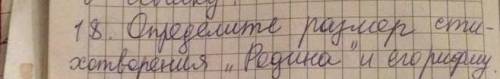 18. Определите размер сти-
хотворения „Родина" и его рифму.